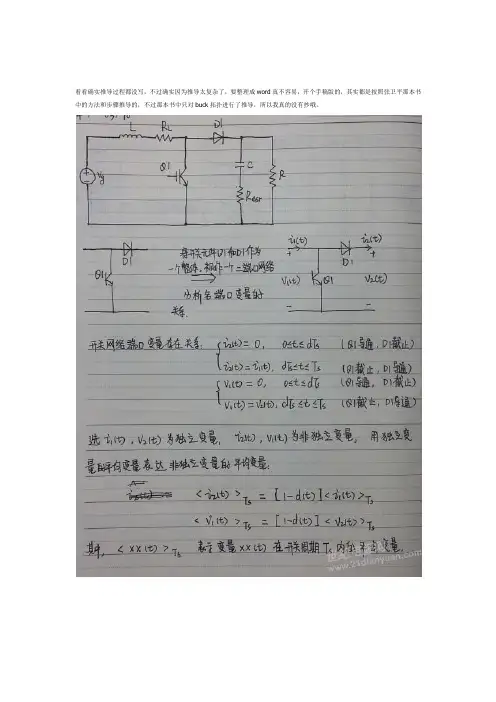 看着确实推导过程都没写，不过确实因为推导太复杂了，要整理成word真不容易，开个手稿版的，其实都是按照张卫平那本书
中的方法和步骤推导的，不过那本书中只对buck拓扑进行了推导，所以我真的没有抄哦。
L RL D1
Vg Q1 C R
Resr
Q1 D1
将开关元件Q1和D1作为
一个整体，视作一个二端口网络
分析各端口变量的
关系
i1(t) i2(t)
D1
V1(t) Q1 V2(t)
开关网络端口变量存在关系: i2(t)=0, 0≤t≤dTs (Q1导通, D1截止)
i2(t)=i1(t), dTs≤t≤Ts (Q1截止, D1导通)
V1(t)=0, 0≤t≤dTs (Q1导通, D1截止)
V1(t)=V2(t), dTs≤t≤Ts (Q1截止, D1导通)
选 i1(t), V2(t)为独立变量, i2(t), V1(t)为非独立变量, 用独立变
量的平均变量表达非独立变量的平均变量:
<i2(t)>Ts = [1-d(t)]<i1(t)>Ts
<V1(t)>Ts = [1-d(t)]<V2(t)>Ts
其中, <xx(t)>Ts 表示变量xx(t)在开关周期Ts内的平均变量.
www.21dianyuan.com